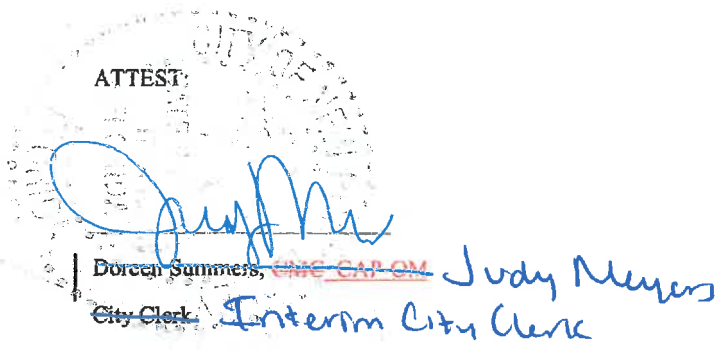 CITY OF
ATTEST:
Doreen Summers, CMC CAP OM Judy Meyers
City Clerk Interim City Clerk